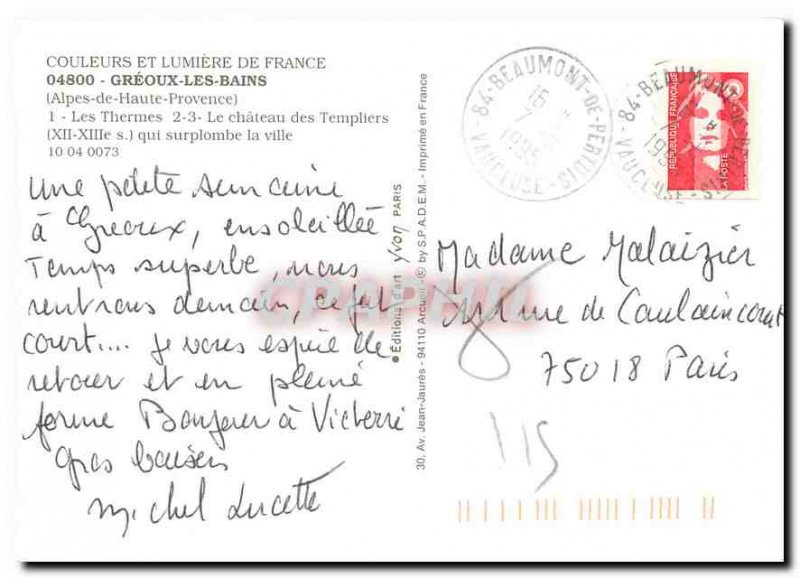 COULEURS ET LUMIÈRE DE FRANCE
04800 - GRÉOUX-LES-BAINS
(Alpes-de-Haute-Provence)
1 - Les Thermes 2-3- Le château des Templiers
(XII-XIIIe s.) qui surplombe la ville
10 04 0073
une petite semaine
à Gréoux, ensoleillée
Temps superbe, nous
rentrons demain, ce fut
court... Je vous espère de
retour et en pleine
forme Bonjour à
Gros baisers
Michel Lucette
● Éditions d'art yvon PARIS
30, Av. Jean-Jaurès - 94110 Arcueil - © by S.P.A.D.E.M. - Imprimé en France
84-BEAUMONT-DE-PERTUIS
16
7
1995
VAUCLUSE
84-BEAUMONT-DE
VAUCLUSE
RÉPUBLIQUE FRANÇAISE
LA POSTE
Madame Malaizier
rue de Caulaincourt
75018 Paris
115
CPAPHIL